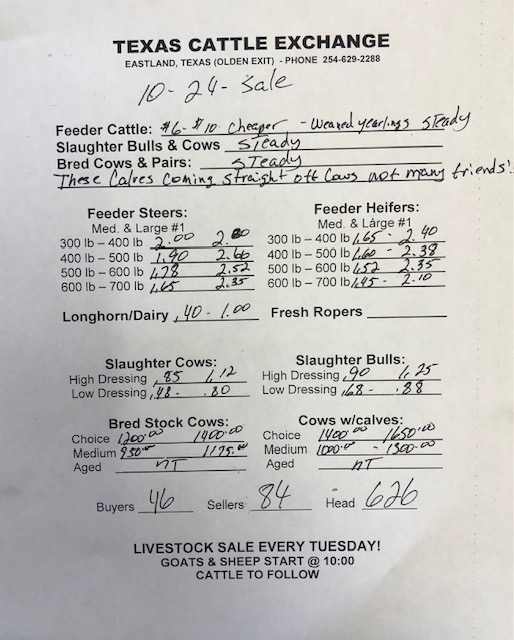 TEXAS CATTLE EXCHANGE
EASTLAND, TEXAS (OLDEN EXIT) - PHONE 254-629-2288
10-24- Sale
Feeder Cattle: $6-$10 Cheaper - Weaned yearlings Steady
Slaughter Bulls & Cows Steady
Bred Cows & Pairs: Steady
These Calves Coming Straight off Cows not many friends!
Feeder Steers:
Med. & Large #1
300 lb – 400 lb 2.00 2.80
400 lb – 500 lb 1.90 2.66
500 lb – 600 lb 1.78 2.52
600 lb – 700 lb 1.65 2.35
Feeder Heifers:
Med. & Large #1
300 lb – 400 lb 1.65 - 2.40
400 lb – 500 lb 1.60 - 2.38
500 lb – 600 lb 1.52 2.35
600 lb – 700 lb 1.45 - 2.10
Longhorn/Dairy .40 - 1.00 Fresh Ropers
Slaughter Cows:
High Dressing .85 1.12
Low Dressing .48 - .80
Slaughter Bulls:
High Dressing .90 1.25
Low Dressing .68 - .88
Bred Stock Cows:
Choice 1200.00 1400.00
Medium 950.00 1175.00
Aged NT
Cows w/calves:
Choice 1400.00 1650.00
Medium 1000.00 - 1300.00
Aged NT
Buyers 46 Sellers 84 Head 626
LIVESTOCK SALE EVERY TUESDAY!
GOATS & SHEEP START @ 10:00
CATTLE TO FOLLOW